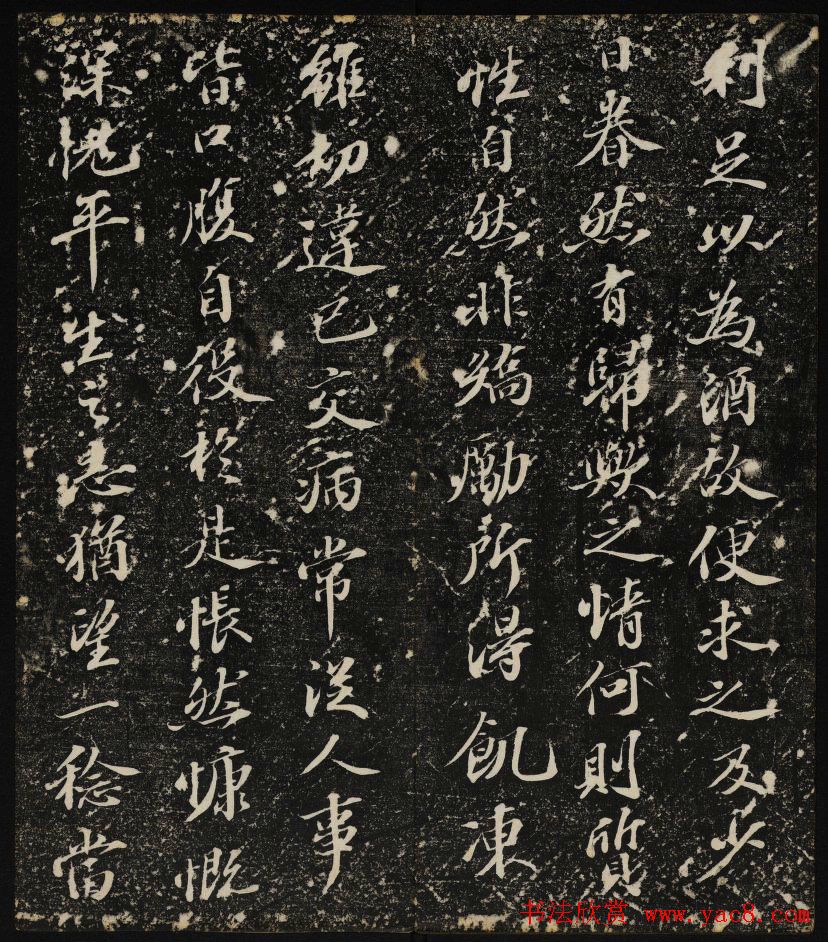 利足以為酒故便求之及少
日眷然有歸歟之情何則質
性自然非矯勵所得飢凍
雖切違己交病常從人事
皆口腹自役於是悵然慷慨
深愧平生之志猶望一稔當
书法欣赏 www.yac8.com